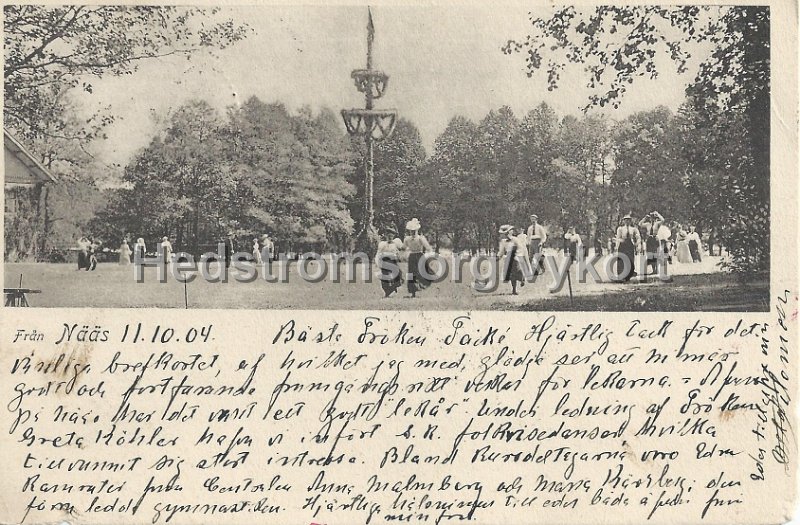 Hedstroms.org/vykort
Från Nääs 11.10.04. Bästa Fröken Hjärtlig tack för det
brefkortet, af hvilket jag med glädje ser att ni mår
godt och fortfarande verkar för lekarna. -
På Nääs har det varit ett godt "lekår" Under ledning af Fröken
Greta Köhler hafva vi infört s.k. folkvisedanser hvilka
tillvunnit sig stort intresse. Bland kursdeltagarna voro Edra
Kamrater från Centralen Anna Malmberg och den
förra ledde gymnastiken. Hjärtliga hälsningar till eder båda från
min fru.
Eder tillgifne